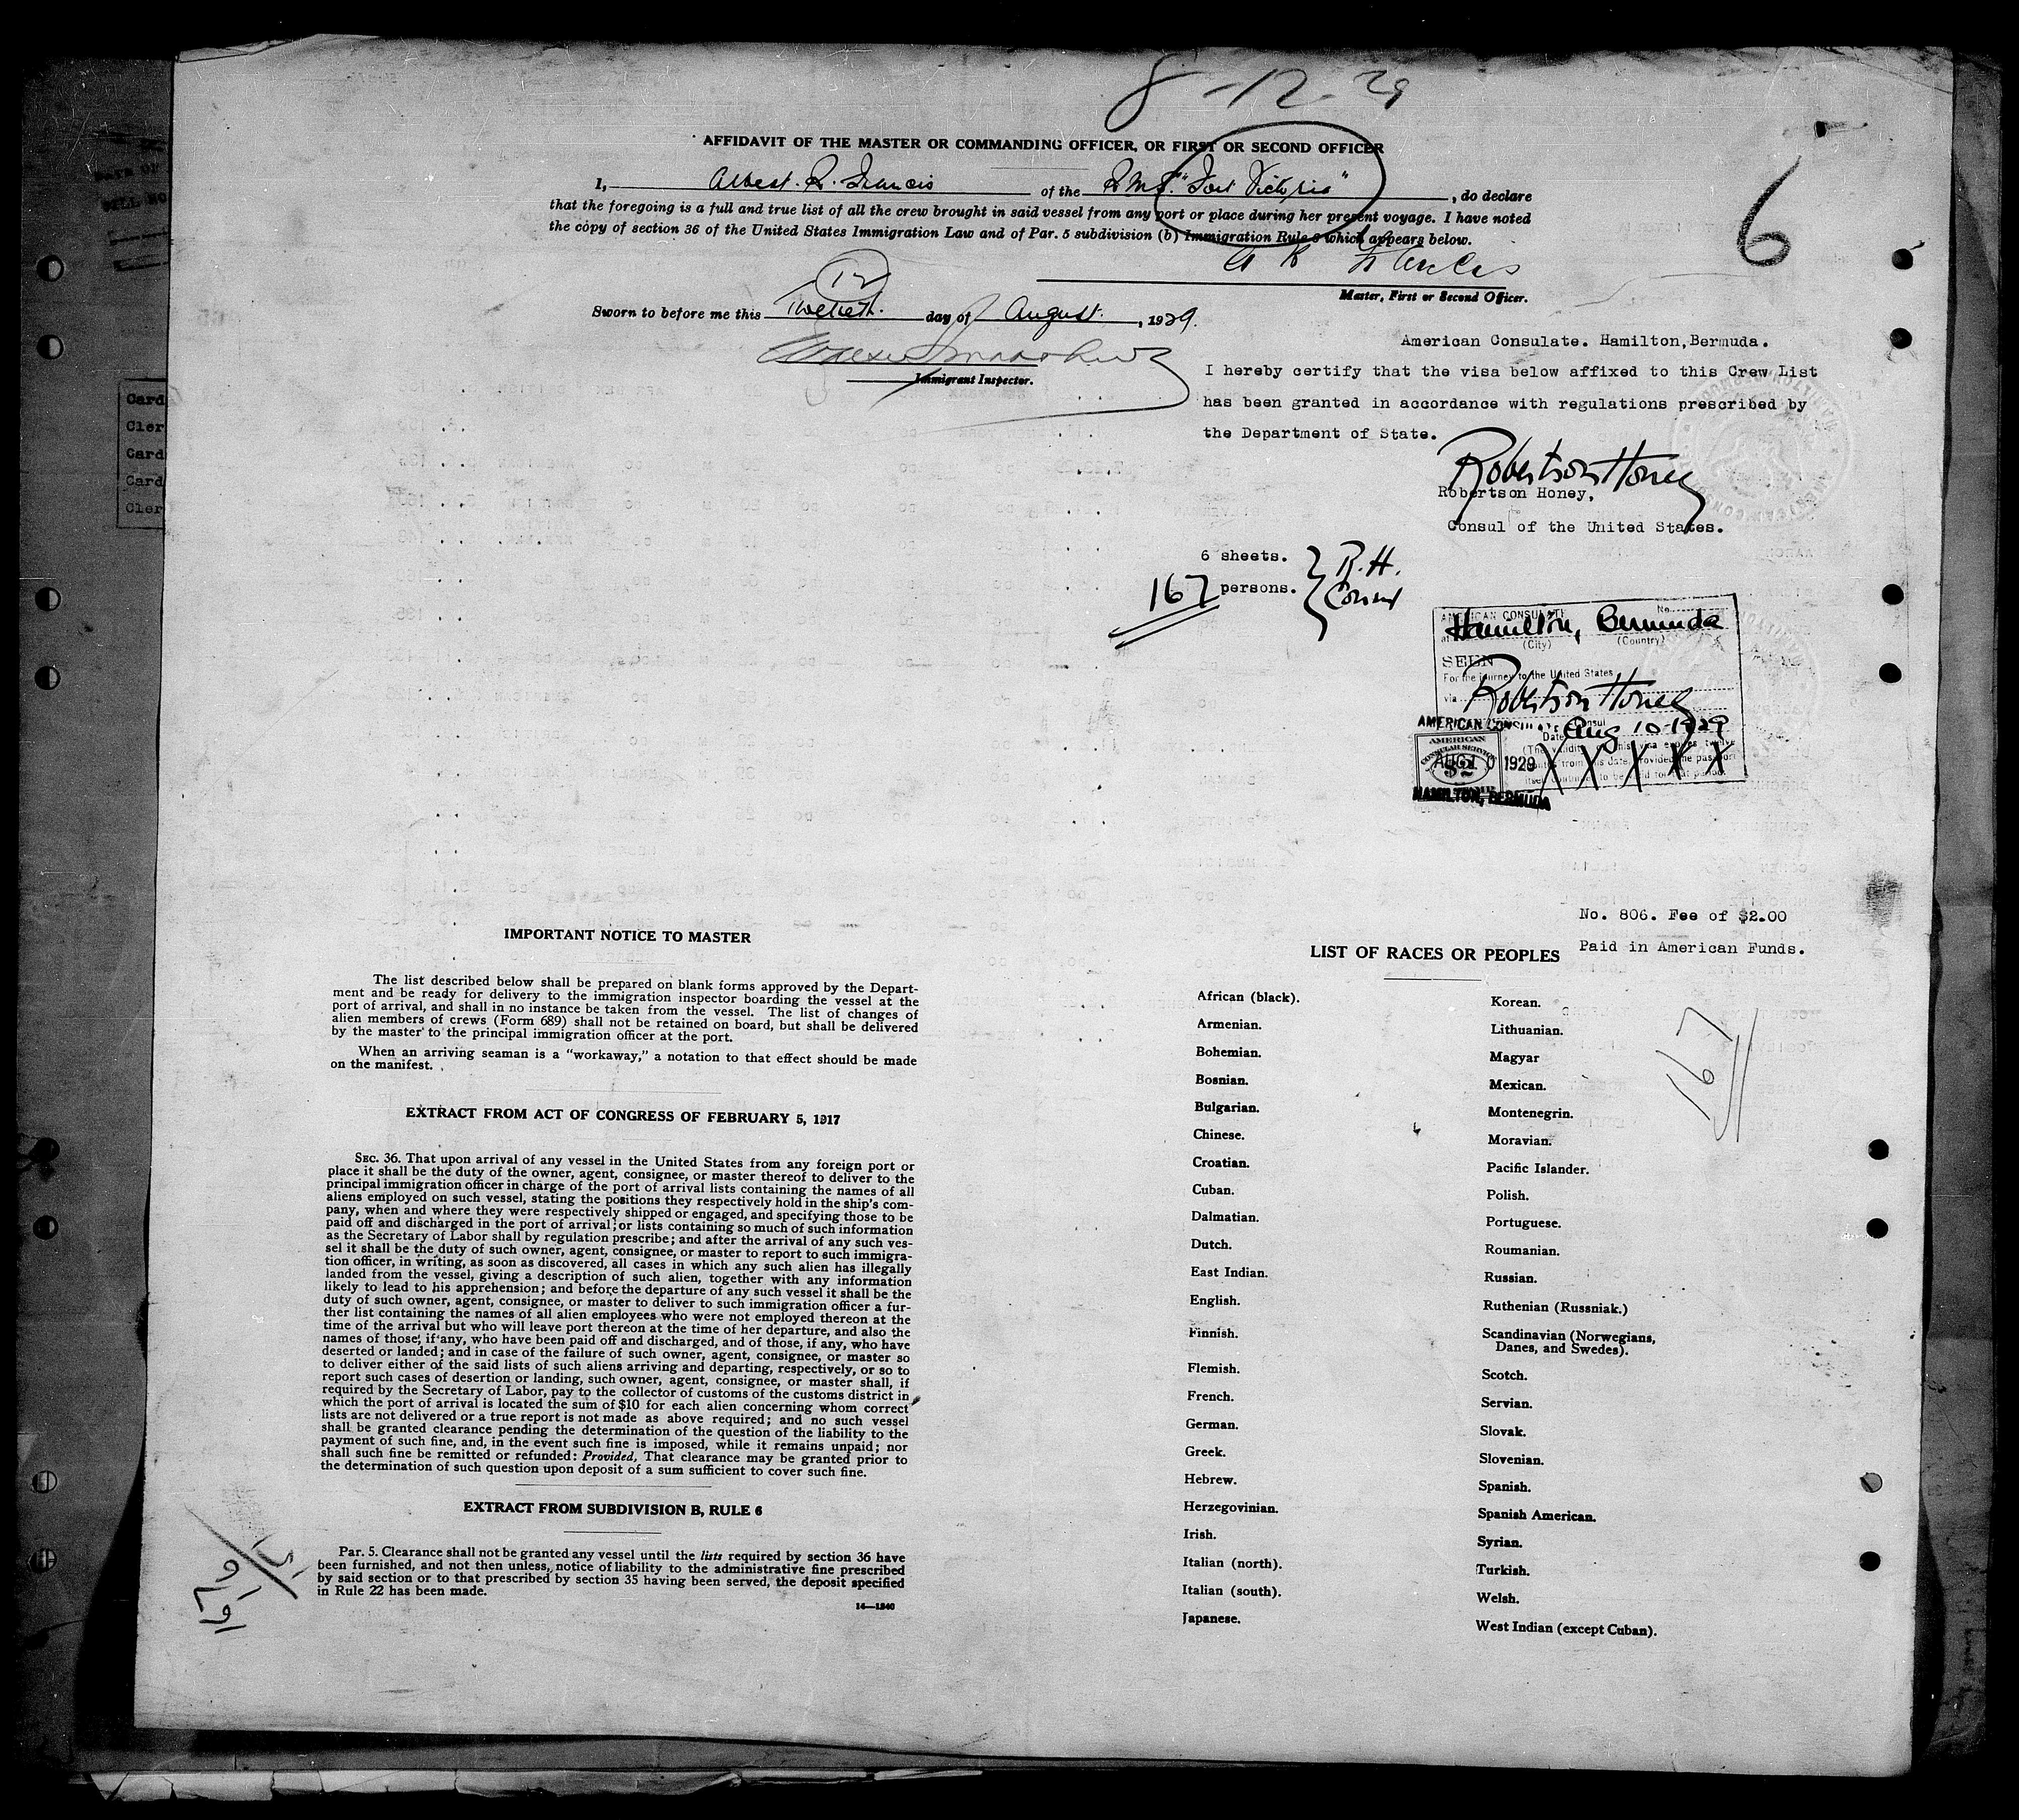 8-12-29
AFFIDAVIT OF THE MASTER OR COMMANDING OFFICER, OR FIRST OR SECOND OFFICER
I, Albert. R. Francis of the R.M.S. "Fort Victoria", do declare
that the foregoing is a full and true list of all the crew brought in said vessel from any port or place during her present voyage. I have noted
the copy of section 36 of the United States Immigration Law and of Par. 5 subdivision (b) Immigration Rule 6 which appears below.
6
A R Francis
Master, First or Second Officer.
12
Sworn to before me this Twelveth. day of August. , 1929.
Immigrant Inspector.
American Consulate. Hamilton, Bermuda.
I hereby certify that the visa below affixed to this Crew List
has been granted in accordance with regulations prescribed by
the Department of State.
Robertson Honey
Robertson Honey,
Consul of the United States.
6 sheets.
167 persons.
R.H.
Consul
AMERICAN CONSULATE No.
at Hamilton, Bermuda
(City) (Country)
SEEN
For the journey to the United States
via
Robertson Honey
Consul
Date Aug 10-1929
(The validity of this visa expires twelve
months from this date, provided the passport
itself continues to be valid for that period.
X X X X X
AMERICAN CONSULATE
AMERICAN
CONSULAR SERVICE
$2
AUG 10 1929
HAMILTON, BERMUDA
No. 806. Fee of $2.00
Paid in American Funds.
167
IMPORTANT NOTICE TO MASTER
The list described below shall be prepared on blank forms approved by the Depart-
ment and be ready for delivery to the immigration inspector boarding the vessel at the
port of arrival, and shall in no instance be taken from the vessel. The list of changes of
alien members of crews (Form 689) shall not be retained on board, but shall be delivered
by the master to the principal immigration officer at the port.
When an arriving seaman is a "workaway," a notation to that effect should be made
on the manifest.
EXTRACT FROM ACT OF CONGRESS OF FEBRUARY 5, 1917
SEC. 36. That upon arrival of any vessel in the United States from any foreign port or
place it shall be the duty of the owner, agent, consignee, or master thereof to deliver to the
principal immigration officer in charge of the port of arrival lists containing the names of all
aliens employed on such vessel, stating the positions they respectively hold in the ship's com-
pany, when and where they were respectively shipped or engaged, and specifying those to be
paid off and discharged in the port of arrival; or lists containing so much of such information
as the Secretary of Labor shall by regulation prescribe; and after the arrival of any such ves-
sel it shall be the duty of such owner, agent, consignee, or master to report to such immigra-
tion officer, in writing, as soon as discovered, all cases in which any such alien has illegally
landed from the vessel, giving a description of such alien, together with any information
likely to lead to his apprehension; and before the departure of any such vessel it shall be the
duty of such owner, agent, consignee, or master to deliver to such immigration officer a fur-
ther list containing the names of all alien employees who were not employed thereon at the
time of the arrival but who will leave port thereon at the time of her departure, and also the
names of those, if any, who have been paid off and discharged, and of those, if any, who have
deserted or landed; and in case of the failure of such owner, agent, consignee, or master so
to deliver either of the said lists of such aliens arriving and departing, respectively, or so to
report such cases of desertion or landing, such owner, agent, consignee, or master shall, if
required by the Secretary of Labor, pay to the collector of customs of the customs district in
which the port of arrival is located the sum of $10 for each alien concerning whom correct
lists are not delivered or a true report is not made as above required; and no such vessel
shall be granted clearance pending the determination of the question of the liability to the
payment of such fine, and, in the event such fine is imposed, while it remains unpaid; nor
shall such fine be remitted or refunded: Provided, That clearance may be granted prior to
the determination of such question upon deposit of a sum sufficient to cover such fine.
EXTRACT FROM SUBDIVISION B, RULE 6
Par. 5. Clearance shall not be granted any vessel until the lists required by section 36 have
been furnished, and not then unless, notice of liability to the administrative fine prescribed
by said section or to that prescribed by section 35 having been served, the deposit specified
in Rule 22 has been made.
14—1240
LIST OF RACES OR PEOPLES
African (black).
Armenian.
Bohemian.
Bosnian.
Bulgarian.
Chinese.
Croatian.
Cuban.
Dalmatian.
Dutch.
East Indian.
English.
Finnish.
Flemish.
French.
German.
Greek.
Hebrew.
Herzegovinian.
Irish.
Italian (north).
Italian (south).
Japanese.
Korean.
Lithuanian.
Magyar
Mexican.
Montenegrin.
Moravian.
Pacific Islander.
Polish.
Portuguese.
Roumanian.
Russian.
Ruthenian (Russniak.)
Scandinavian (Norwegians,
Danes, and Swedes).
Scotch.
Servian.
Slovak.
Slovenian.
Spanish.
Spanish American.
Syrian.
Turkish.
Welsh.
West Indian (except Cuban).
Card
Cler
Card
Card
Cler